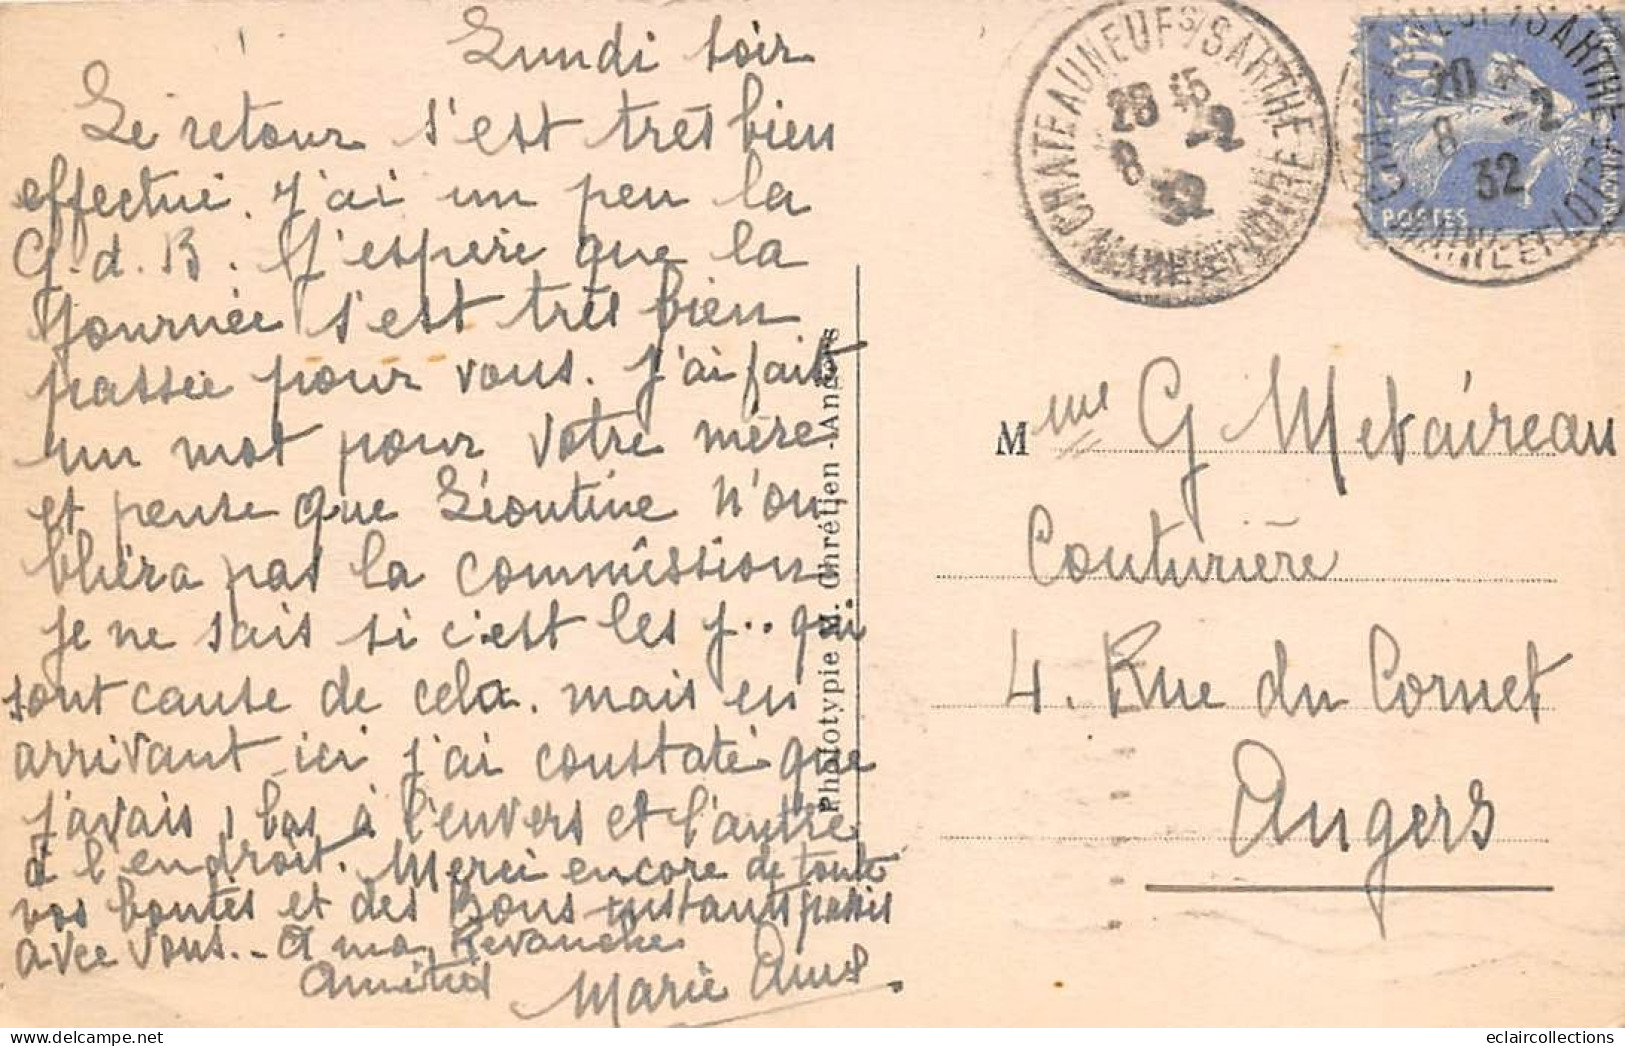 Lundi soir
Le retour s'est très bien
effectué. J'ai un peu la
G. d. B. J'espère que la
Journée s'est très bien
passée pour vous. J'ai fait
un mot pour votre mère
et pense que Léontine n'ou
bliera pas la commission
je ne sais si c'est les J.. qui
sont cause de cela. mais en
arrivant ici j'ai constaté que
j'avais 1 bas à l'envers et l'autre
à l'endroit. Merci encore de toute
vos bontés et des Bons instants passés
avec vous. - A ma Revanche
Amitié
Marie
Phototypie M. Chrétien - Angers
CHATEAUNEUF S/SARTHE
MAINE ET LOIRE
8 -2
32
POSTES
20
8 -2
32
Mme G Metaireau
Couturière
4. Rue du Cornet
Angers
delcampe.net
eclaircollections